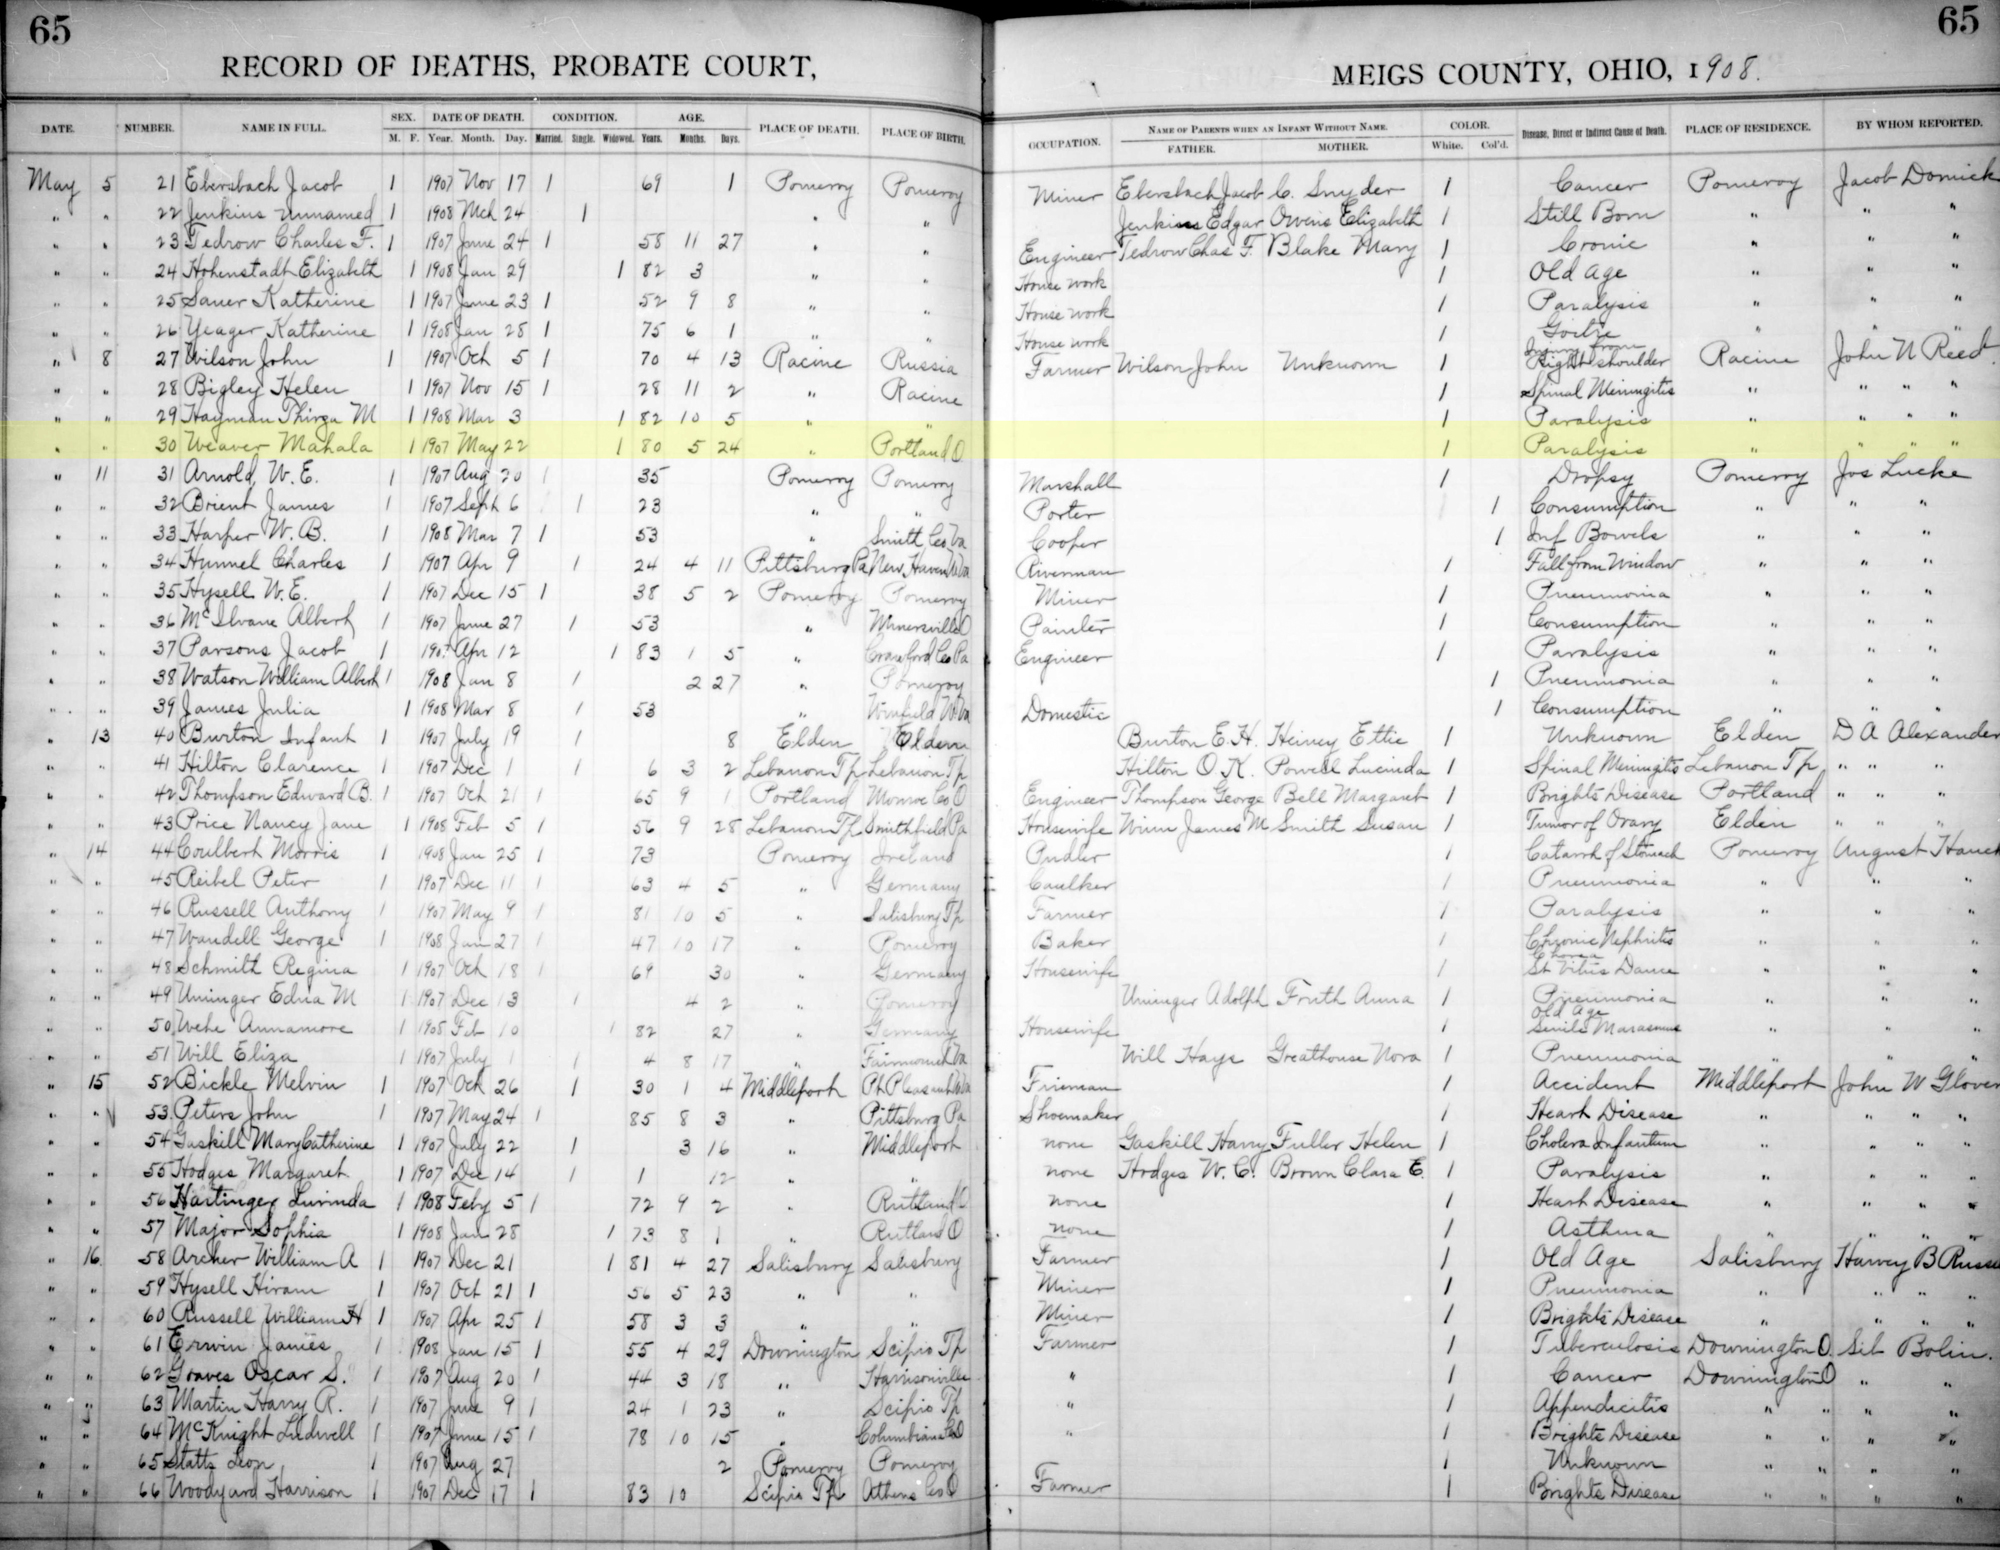 65 65
RECORD OF DEATHS, PROBATE COURT, MEIGS COUNTY, OHIO, 1908.
DATE. NUMBER. NAME IN FULL. SEX. DATE OF DEATH. CONDITION. AGE. PLACE OF DEATH. PLACE OF BIRTH. OCCUPATION. NAME OF PARENTS WHEN AN INFANT WITHOUT NAME. COLOR. Disease, Direct or Indirect Cause of Death. PLACE OF RESIDENCE. BY WHOM REPORTED.
M. F. Year. Month. Day. Married. Single. Widowed. Years. Months. Days. FATHER. MOTHER. White. Col'd.
May 5 21 Ebersbach Jacob 1 1907 Nov 17 1 69 1 Pomeroy Pomeroy Miner Ebersbach Jacob C. Snyder 1 Cancer Pomeroy Jacob Domick
" " 22 Jenkins unnamed 1 1908 Mch 24 1 " " Jenkins Edgar Owens Elizabeth 1 Still Born " " "
" " 23 Tedrow Charles F. 1 1907 June 24 1 58 11 27 " " Engineer Tedrow Chas F. Blake Mary 1 Cronic " " "
" " 24 Hohenstadt Elizabeth 1 1908 Jan 29 1 82 3 " " House work 1 Old Age " " "
" " 25 Sauer Katherine 1 1907 June 23 1 52 9 8 " " House work 1 Paralysis " " "
" " 26 Yeager Katherine 1 1908 Jan 28 1 75 6 1 " " House work 1 Goitre " " "
" 8 27 Wilson John 1 1907 Oct 5 1 70 4 13 Racine Russia Farmer Wilson John Unknown 1 Injury from Right shoulder Racine John N Reed
" " 28 Bigley Helen 1 1907 Nov 15 1 28 11 2 " Racine 1 Spinal Meningitis " " " "
" " 29 Hayman Thirza M 1 1908 Mar 3 1 82 10 5 " " 1 Paralysis " " " "
" " 30 Weaver Mahala 1 1907 May 22 1 80 5 24 " Portland O 1 Paralysis " " " "
" 11 31 Arnold, W. E. 1 1907 Aug 20 1 35 Pomeroy Pomeroy Marshall 1 Dropsy Pomeroy Jos Lucke
" " 32 Brient James 1 1907 Sept 6 1 23 " " Porter 1 Consumption " " "
" " 33 Harper W. B. 1 1908 Mar 7 1 53 " Smith Co Va Cooper 1 Inf Bowels " " "
" " 34 Hummel Charles 1 1907 Apr 9 1 24 4 11 Pittsburg Pa New Haven W Va Riverman 1 Fall from Window " " "
" " 35 Hysell W. E. 1 1907 Dec 15 1 38 5 2 Pomeroy Pomeroy Miner 1 Pneumonia " " "
" " 36 McIlvane Albert 1 1907 June 27 1 53 " Minersville O Painter 1 Consumption " " "
" " 37 Parsons Jacob 1 1907 Apr 12 1 83 1 5 " Crawford Co Pa Engineer 1 Paralysis " " "
" " 38 Watson William Albert 1 1908 Jan 8 1 2 27 " Pomeroy 1 Pneumonia " " "
" " 39 James Julia 1 1908 Mar 8 1 53 " Winfield W. Va Domestic 1 Consumption " " "
" 13 40 Burton Infant 1 1907 July 19 1 8 Elden Elden Burton E. H. Heiney Ettie 1 Unknown Elden D A Alexander
" " 41 Hilton Clarence 1 1907 Dec 1 1 6 3 2 Lebanon Tp Lebanon Tp Hilton O. K. Powell Lucinda 1 Spinal Meningitis Lebanon Tp " " "
" " 42 Thompson Edward B. 1 1907 Oct 21 1 65 9 1 Portland Monroe Co O Engineer Thompson George Bell Margaret 1 Brights Disease Portland " " "
" " 43 Price Nancy Jane 1 1908 Feb 5 1 56 9 28 Lebanon Tp Smithfield Pa Housewife Winn James M Smith Susan 1 Tumor of Ovary Elden " " "
" 14 44 Coulbert Morris 1 1908 Jan 25 1 73 Pomeroy Ireland Pudler 1 Catarrh of Stomach Pomeroy August Hauck
" " 45 Reibel Peter 1 1907 Dec 11 1 63 4 5 " Germany Caulker 1 Pneumonia " " "
" " 46 Russell Anthony 1 1907 May 9 1 81 10 5 " Salisbury Tp Farmer 1 Paralysis " " "
" " 47 Wandell George 1 1908 Jan 27 1 47 10 17 " Pomeroy Baker 1 Chronic Nephritis " " "
" " 48 Schmitt Regina 1 1907 Oct 18 1 69 30 " Germany Housewife 1 Chorea St Vitus Dance " " "
" " 49 Uminger Edna M 1 1907 Dec 13 1 4 2 " Pomeroy Uminger Adolph Fruth Anna 1 Pneumonia " " "
" " 50 Wehe Annamore 1 1908 Feb 10 1 82 27 " Germany Housewife 1 Old Age Senile Marasmus " " "
" " 51 Will Eliza 1 1907 July 1 1 4 8 17 " Fairmount Va Will Hays Greathouse Nora 1 Pneumonia " " "
" 15 52 Bickle Melvin 1 1907 Oct 26 1 30 1 4 Middleport Pt Pleasant W Va Fireman 1 Accident Middleport John W Glover
" " 53 Peters John 1 1907 May 24 1 85 8 3 " Pittsburg Pa Shoemaker 1 Heart Disease " " " "
" " 54 Gaskill Mary Catherine 1 1907 July 22 1 3 16 " Middleport none Gaskill Harry Fuller Helen 1 Cholera Infantum " " " "
" " 55 Hodges Margaret 1 1907 Dec 14 1 1 12 " " none Hodges W. C. Brown Clara E. 1 Paralysis " " " "
" " 56 Hartinger Lurinda 1 1908 Feby 5 1 72 9 2 " Rutland O none 1 Heart Disease " " " "
" " 57 Major Sophia 1 1908 Jan 28 1 73 8 1 " Rutland O none 1 Asthma " " " "
" 16 58 Archer William A 1 1907 Dec 21 1 81 4 27 Salisbury Salisbury Farmer 1 Old Age Salisbury Harvey B Russe
" " 59 Hysell Hiram 1 1907 Oct 21 1 56 5 23 " " Miner 1 Pneumonia " " " "
" " 60 Russell William H 1 1907 Apr 25 1 58 3 3 " " Miner 1 Brights Disease " " " "
" " 61 Erwin James 1 1908 Jan 15 1 55 4 29 Downington Scipio Tp Farmer 1 Tuberculosis Downington O. Sib Bolin.
" " 62 Graves Oscar S. 1 1907 Aug 20 1 44 3 18 " Harrisonville " 1 Cancer Downington O " "
" " 63 Martin Harry R. 1 1907 June 9 1 24 1 23 " Scipio Tp " 1 Appendicitis " " " "
" " 64 McKnight Ludwell 1 1907 June 15 1 78 10 15 " Columbiana Co O " 1 Brights Disease " " " "
" " 65 Statts Leon 1 1907 Aug 27 2 Pomeroy Pomeroy 1 Unknown " " " "
" " 66 Woodyard Harrison 1 1907 Dec 17 1 83 10 Scipio Tp Athens Co O Farmer 1 Brights Disease " " " "